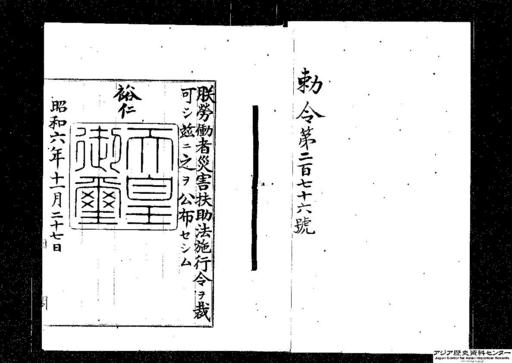 勅令第二百七十六號
朕勞働者災害扶助法施行令ヲ裁
可シ茲ニ之ヲ公布セシム
裕仁
天皇
御璽
昭和六年十一月二十七日
アジア歴史資料センター
Japan Center for Asian Historical Records